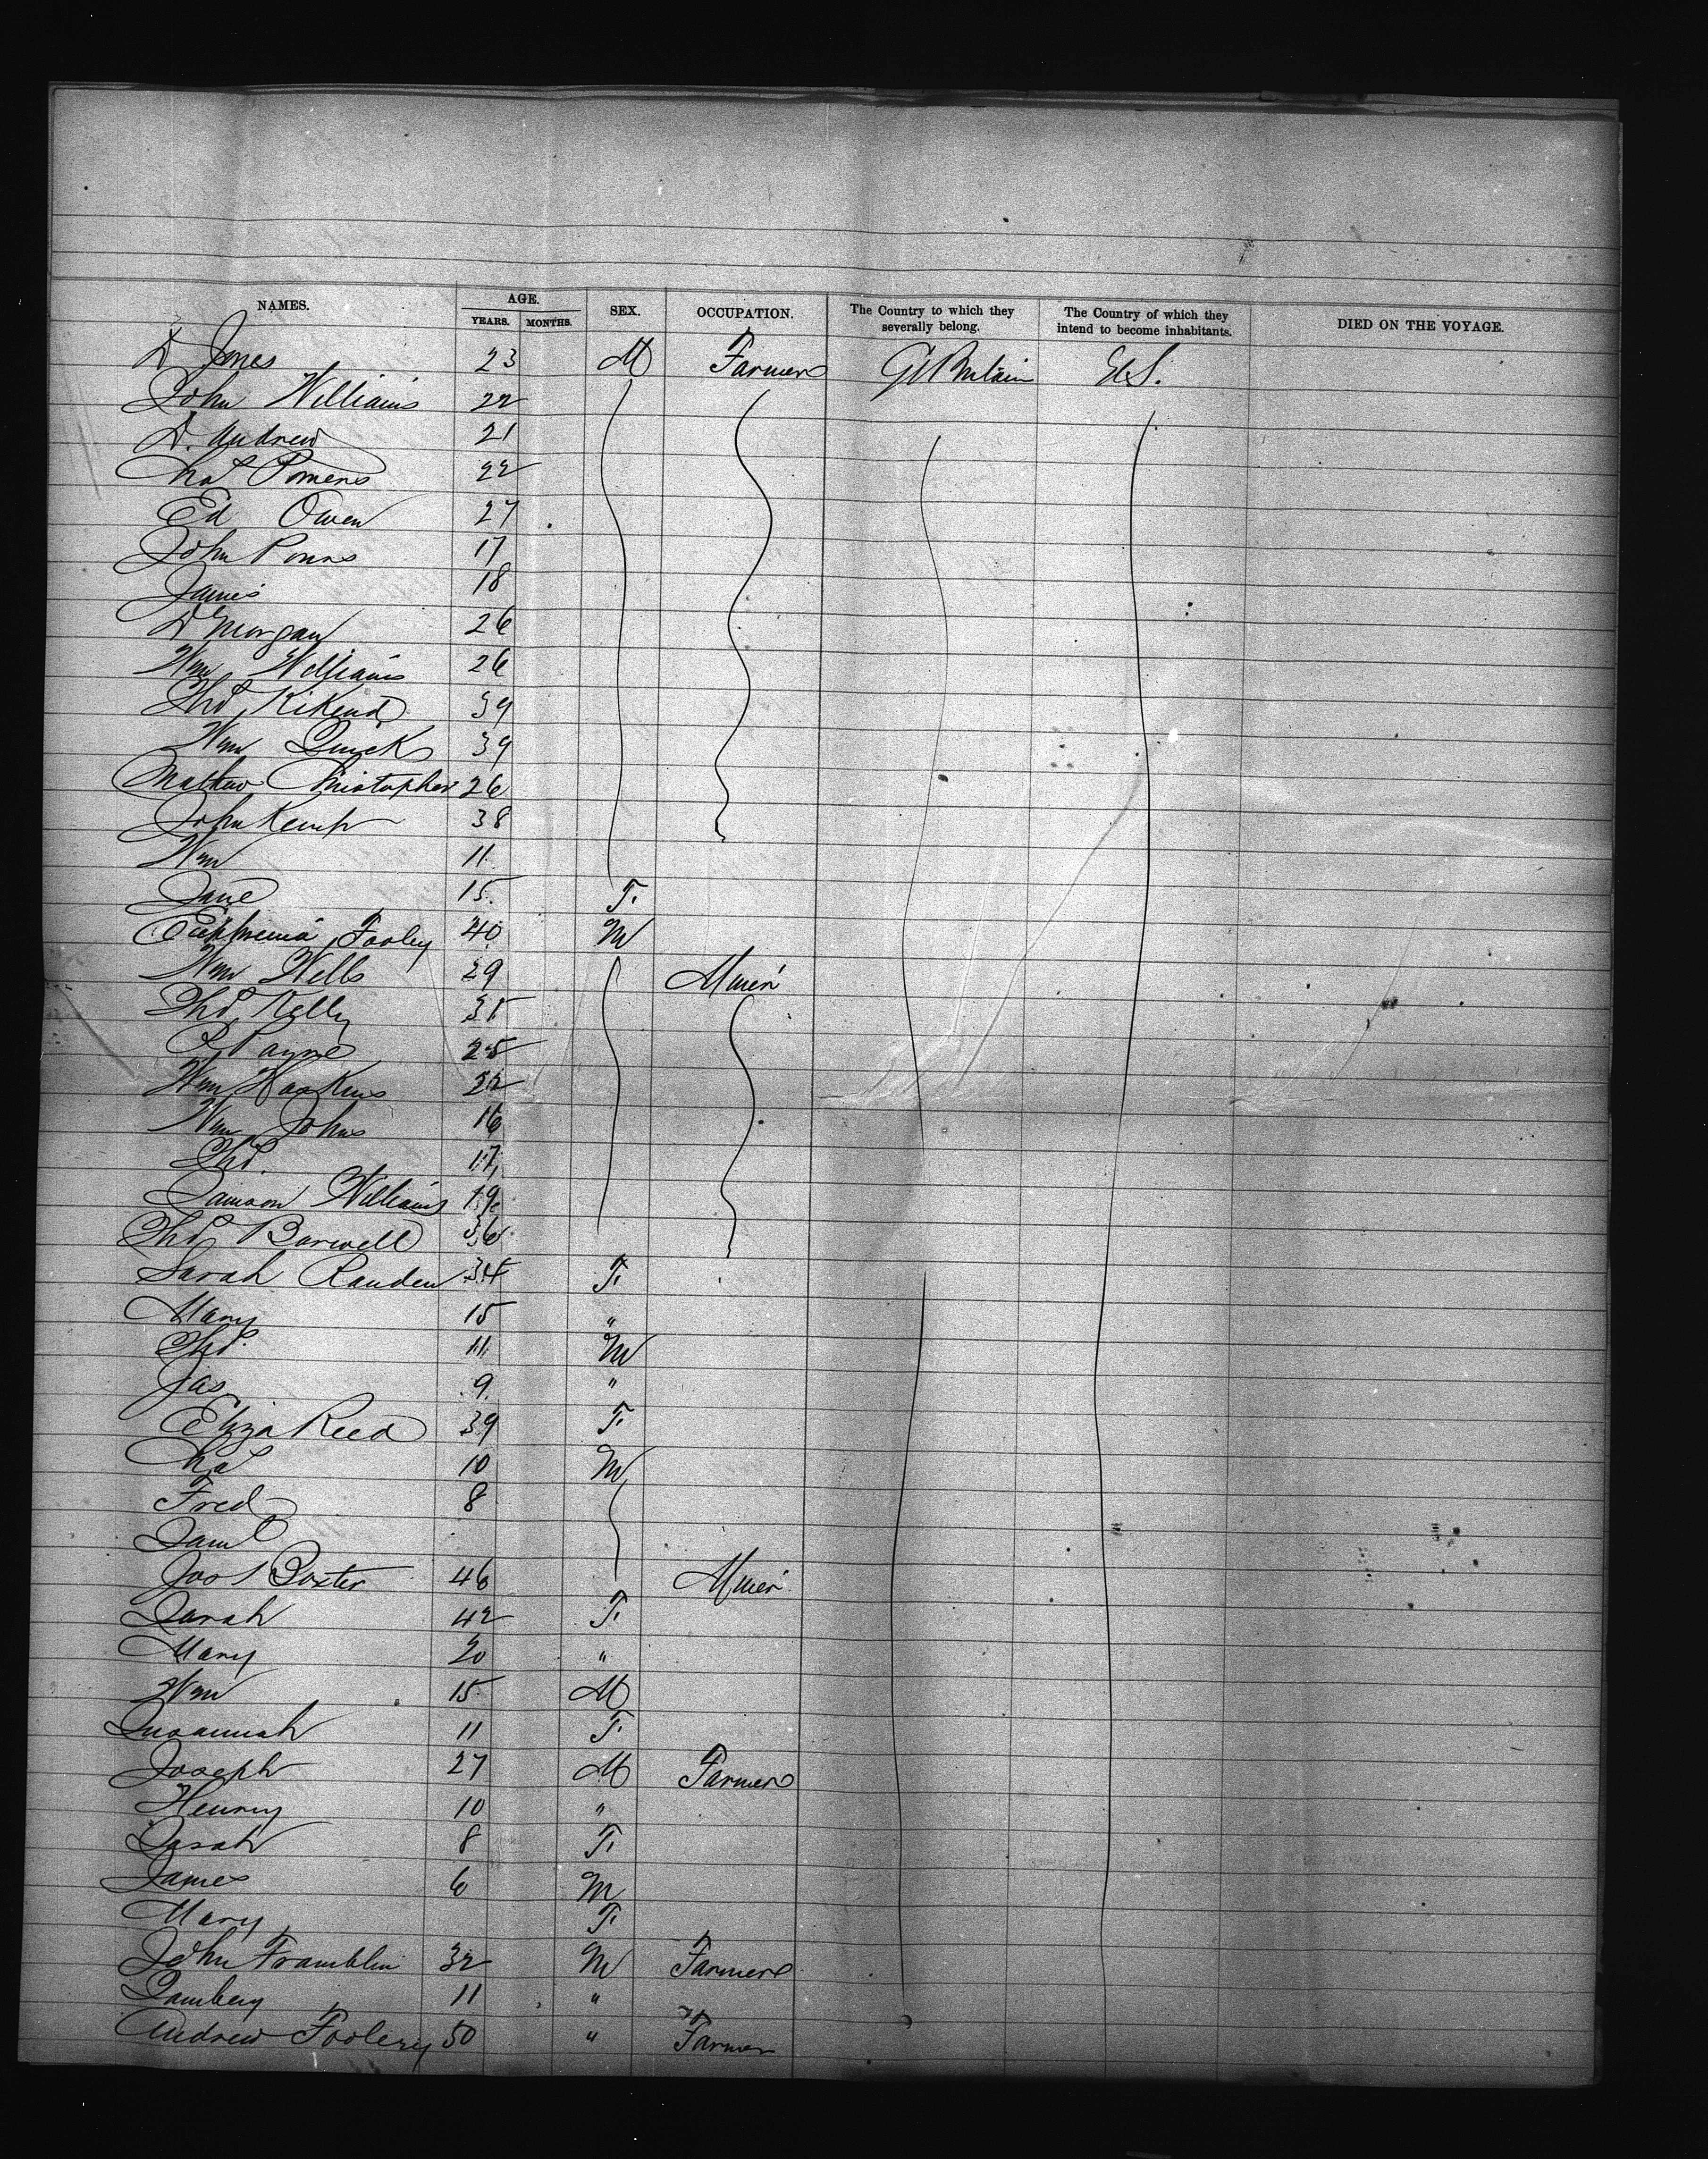 NAMES. AGE. SEX. OCCUPATION. The Country to which they severally belong. The Country of which they intend to become inhabitants. DIED ON THE VOYAGE.
YEARS. MONTHS.
D Jones 23 M Farmer Gt Britain U.S.
John Williams 22
D. Andrew 21
Chas 22
Ed Owen 27
John 17
James 18
D Morgan 26
Wm Williams 26
Thos 39
Wm Quick 39
Mathew Christopher 26
John Kemp 38
Wm 11
Jane 15 F.
Euphemia Fooley 40 M
Wm Wells 29 Miner
Thos Kelly 35
R Payne 25
Wm Hoskins 22
Wm Johns 16
Thos. 17
Samson Williams 19
Thos Barwell 36
Sarah Rauden 34 F.
Mary 15 "
Thos. 11 M
Jas 9 "
Eliza Reed 39 F.
Chas 10 M
Fred 8
Saml
Jos Boxter 46 Miner
Sarah 42 F.
Mary 20 "
Wm 15 M
Susannah 11 F.
Joseph 27 M Farmer
Henry 10 "
Sarah 8 F.
James 6 M
Mary F.
John Framblin 32 M Farmer
11 "
Andrew Foolery 50 " Farmer